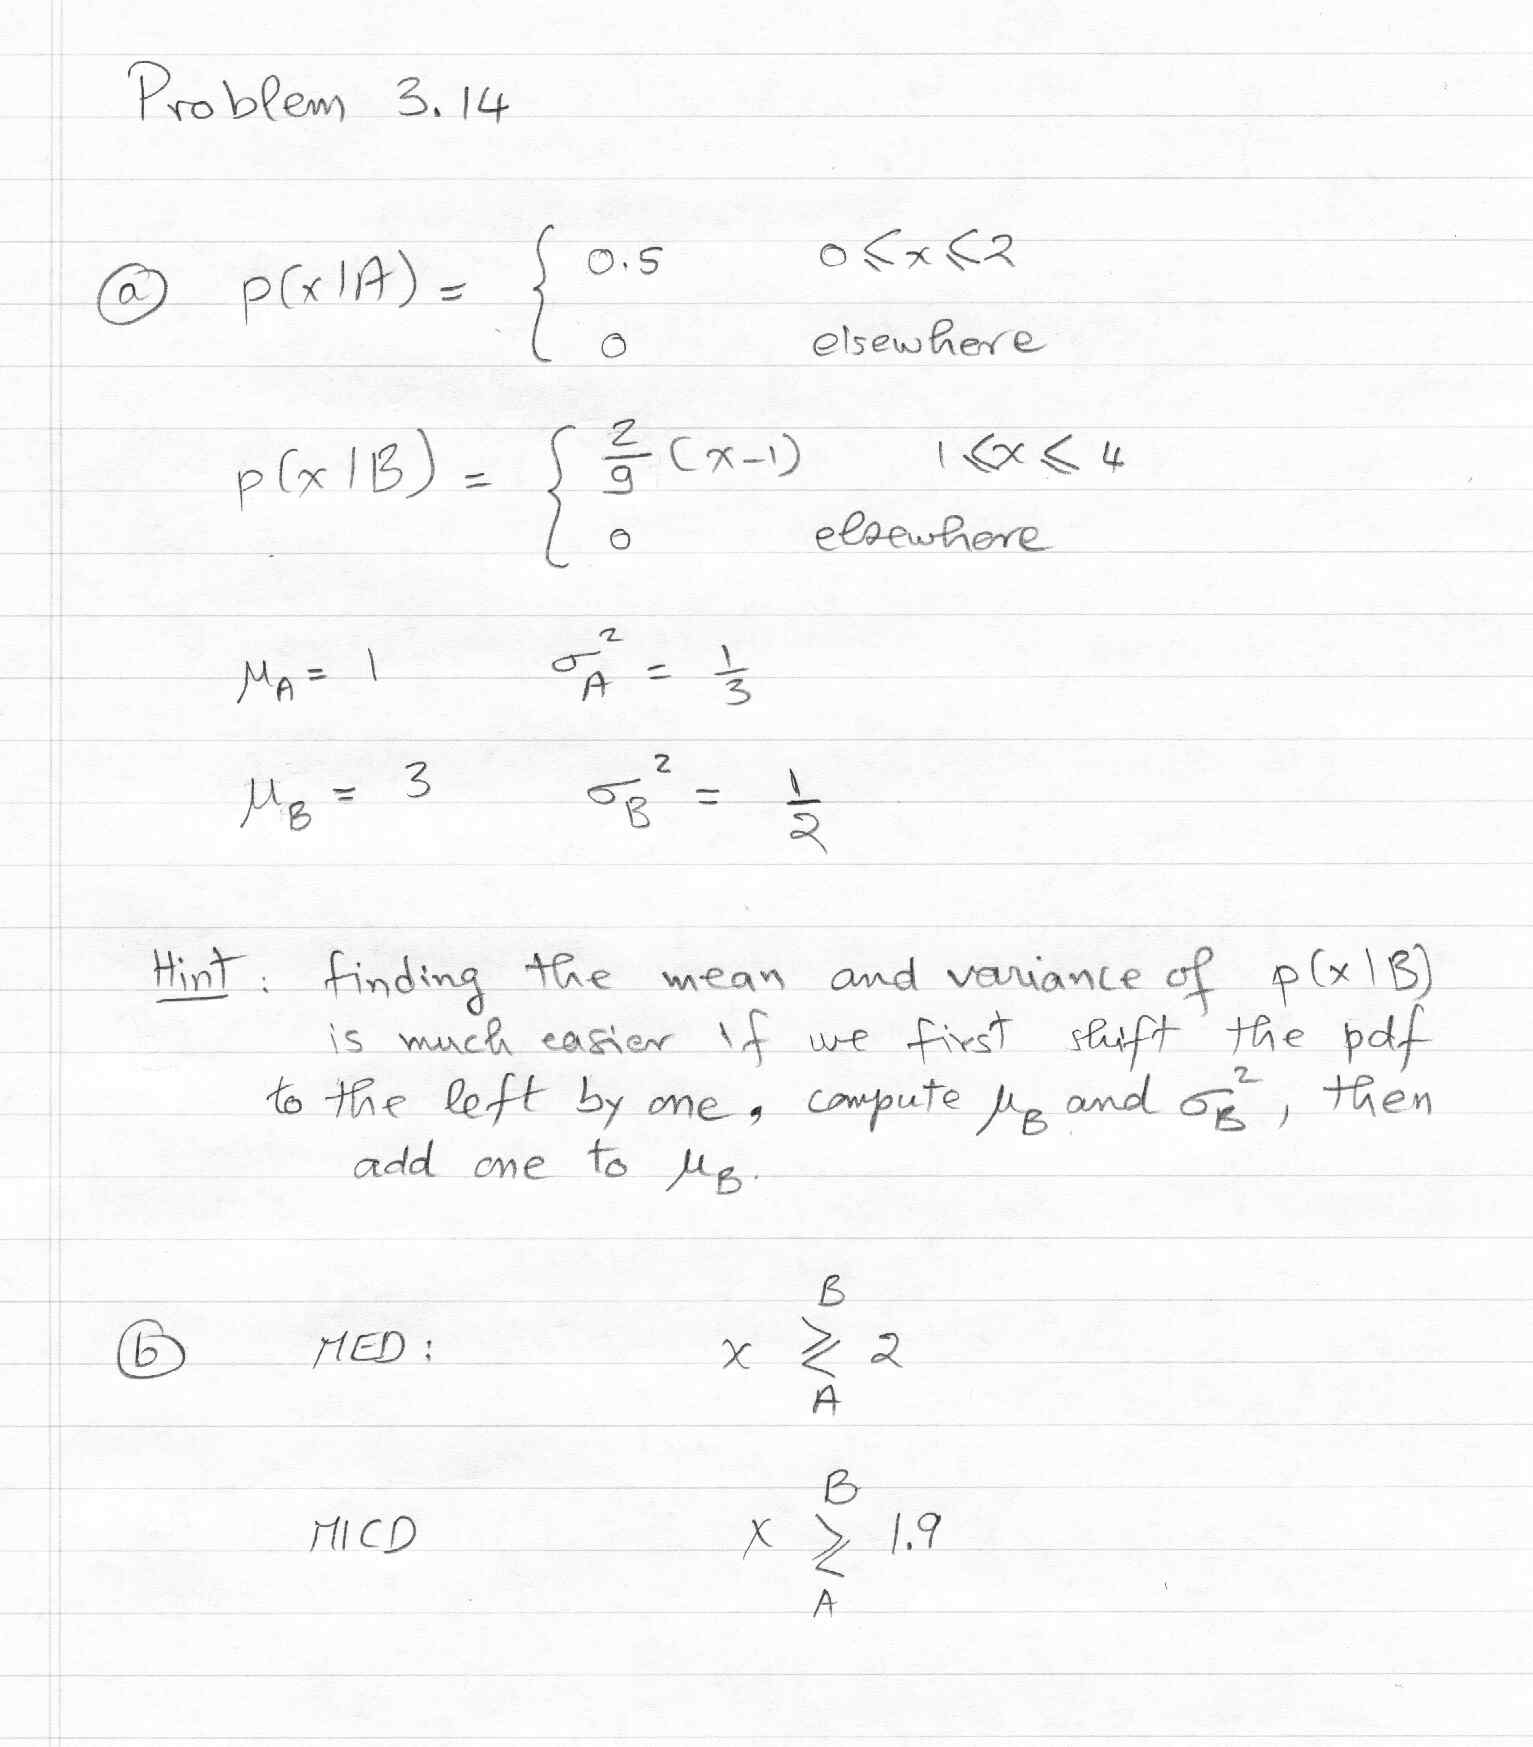 Problem 3.14
(a) p(x|A) = { 0.5   0 ⩽ x ⩽ 2
0   elsewhere
p(x|B) = { 2/9 (x-1)   1 ⩽ x ⩽ 4
0   elsewhere
μ_A = 1   σ_A² = 1/3
μ_B = 3   σ_B² = 1/2
Hint: finding the mean and variance of p(x|B)
is much easier if we first shift the pdf
to the left by one, compute μ_B and σ_B², then
add one to μ_B.
B
(b) MED: x ⩾⩽ 2
A
B
MICD x ⩾⩽ 1.9
A